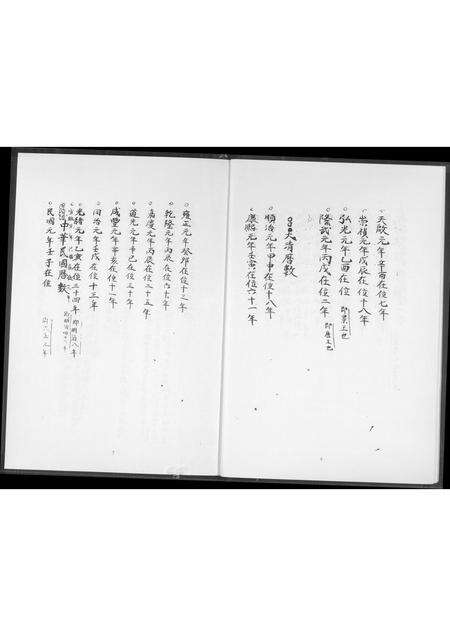 天啟元年辛酉在位七年
崇禎元年戊辰在位十八年
弘光元年乙酉在位
隆武元年丙戌在位二年
清曆數
順治元年甲申在位十八年
康熙元年壬寅在位六十一年
雍正元年癸卯在位十三年
乾隆元年丙辰在位六十年
嘉慶元年丙辰在位二十五年
道光元年辛巳在位三十年
咸豐元年辛亥在位十一年
同治元年壬戌在位十三年
光緒元年乙亥在位三十四年
即明治八年
中華民國曆數
民國元年壬子在位